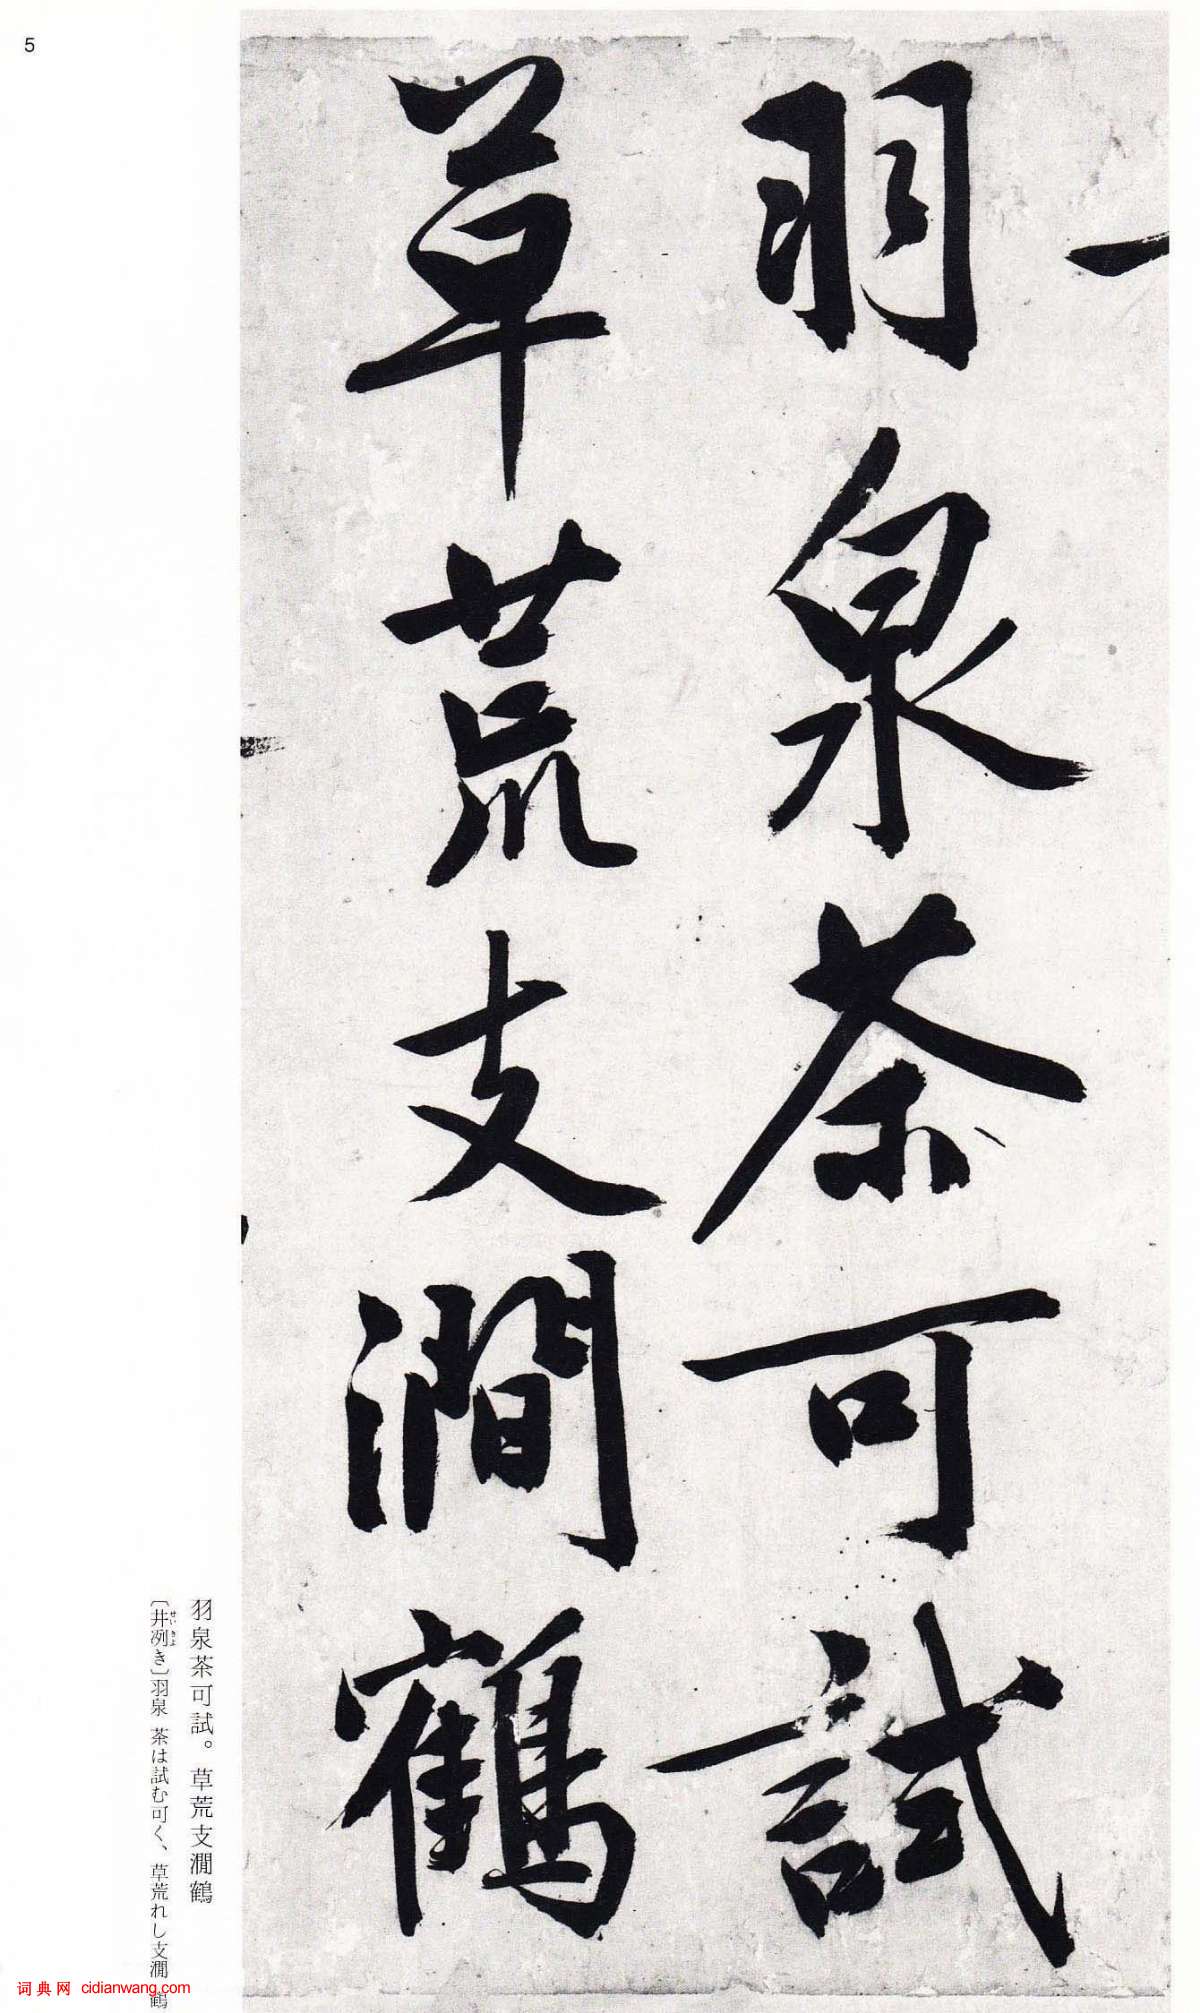 5
羽泉茶可試
草荒支澗鶴
羽泉茶可試。草荒支澗鶴
〔井冽き〕羽泉 茶は試む可く、草荒れし支澗 鶴
せい きよ
词典网 cidianwang.com